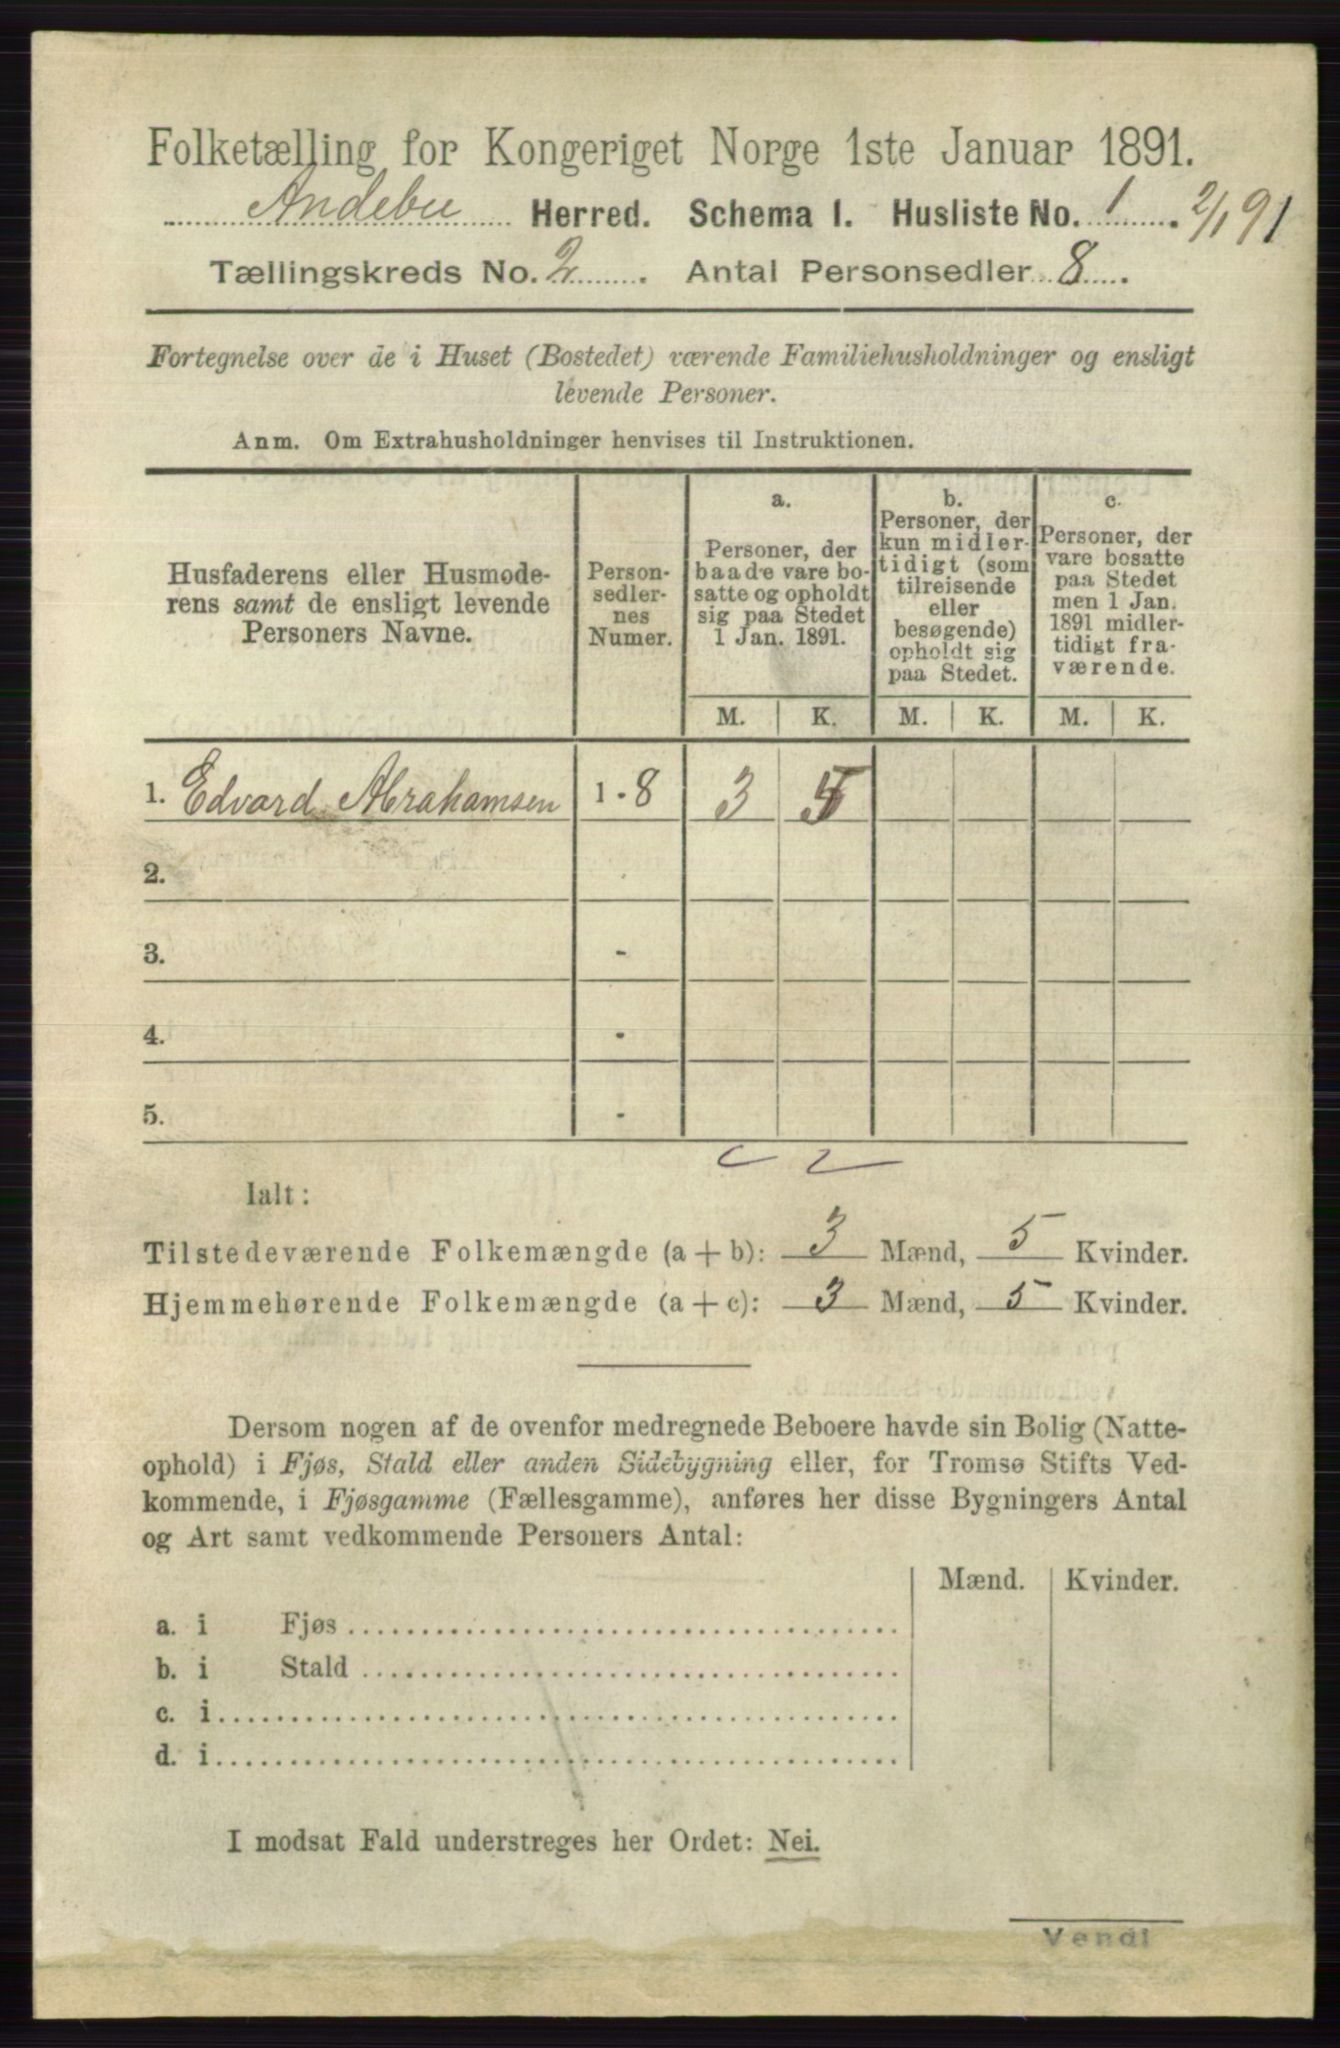 Folketælling for Kongeriget Norge 1ste Januar 1891.
Andebu Herred. Schema 1. Husliste No. 1. 2/1 91
Tællingskreds No. 2. Antal Personsedler 8.
Fortegnelse over de i Huset (Bostedet) værende Familiehusholdninger og ensligt
levende Personer.
Anm. Om Extrahusholdninger henvises til Instruktionen.
Husfaderens eller Husmode-
rens samt de ensligt levende
Personers Navne.
Person-
sedler-
nes
Numer.
a.
Personer, der
baade vare bo-
satte og opholdt
sig paa Stedet
1 Jan. 1891.
b.
Personer, der
kun midler-
tidigt (som
tilreisende
eller
besøgende)
opholdt sig
paa Stedet.
c.
Personer, der
vare bosatte
paa Stedet
men 1 Jan.
1891 midler-
tidigt fra-
værende.
M. K. M. K. M. K.
1. Edvard Abrahamsen 1 - 8 3 5
2.
3. -
4. -
5. -
Ialt:
Tilstedeværende Folkemængde (a + b): 3 Mænd, 5 Kvinder.
Hjemmehørende Folkemængde (a + c): 3 Mænd, 5 Kvinder.
Dersom nogen af de ovenfor medregnede Beboere havde sin Bolig (Natte-
ophold) i Fjøs, Stald eller anden Sidebygning eller, for Tromsø Stifts Ved-
kommende, i Fjøsgamme (Fællesgamme), anføres her disse Bygningers Antal
og Art samt vedkommende Personers Antal:
Mænd. Kvinder.
a. i Fjøs
b. i Stald
c. i
d. i
I modsat Fald understreges her Ordet: Nei.
Vend!